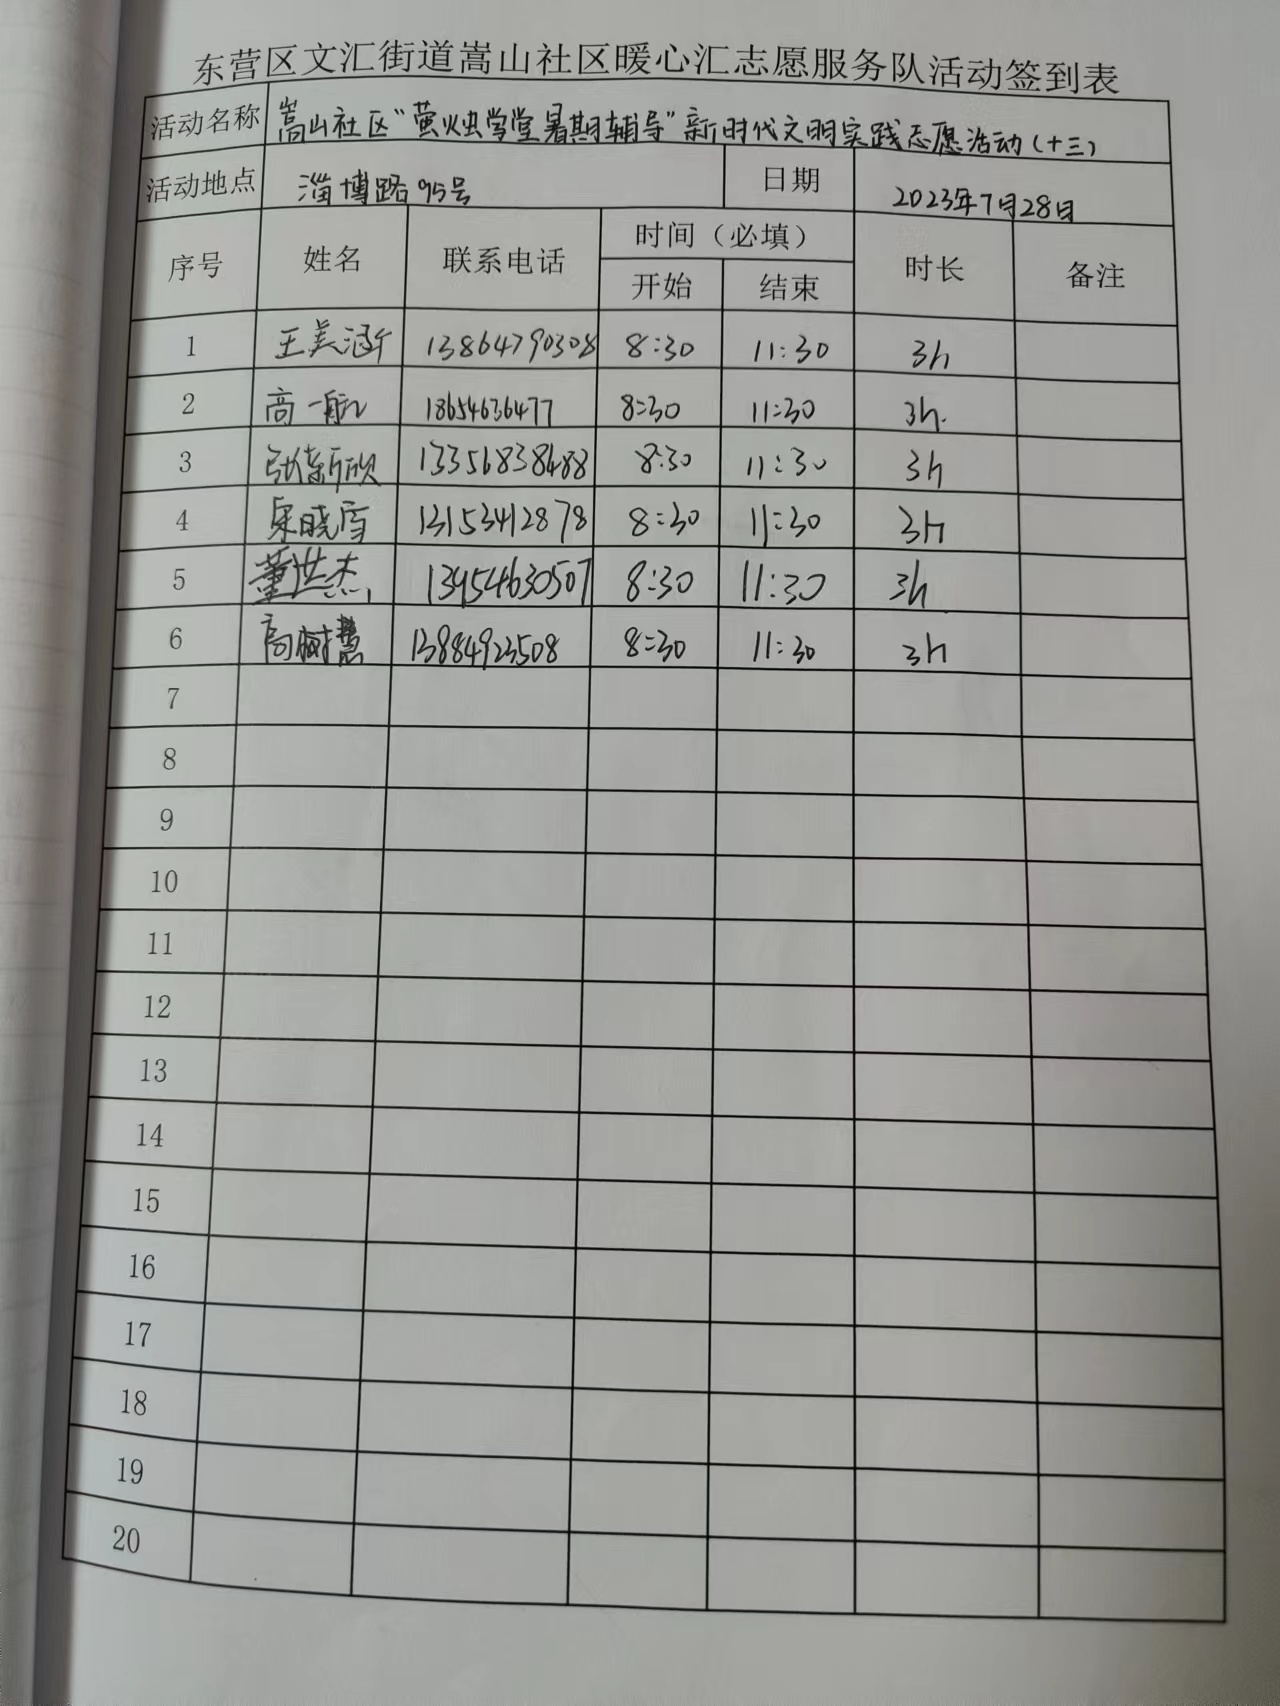 东营区文汇街道嵩山社区暖心汇志愿服务队活动签到表
活动名称 嵩山社区“萤烛学堂暑期辅导”新时代文明实践志愿活动(十三)
活动地点 淄博路95号 日期 2023年7月28日
序号 姓名 联系电话 时间（必填） 时长 备注
开始 结束
1 王美涵 13864790308 8:30 11:30 3h
2 高一航 18654636477 8:30 11:30 3h.
3 张新欣 13356838488 8:30 11:30 3h
4 宋晓雪 13153412878 8:30 11:30 3h
5 董洪杰 13954630507 8:30 11:30 3h
6 高树慧 13884923508 8:30 11:30 3h
7
8
9
10
11
12
13
14
15
16
17
18
19
20